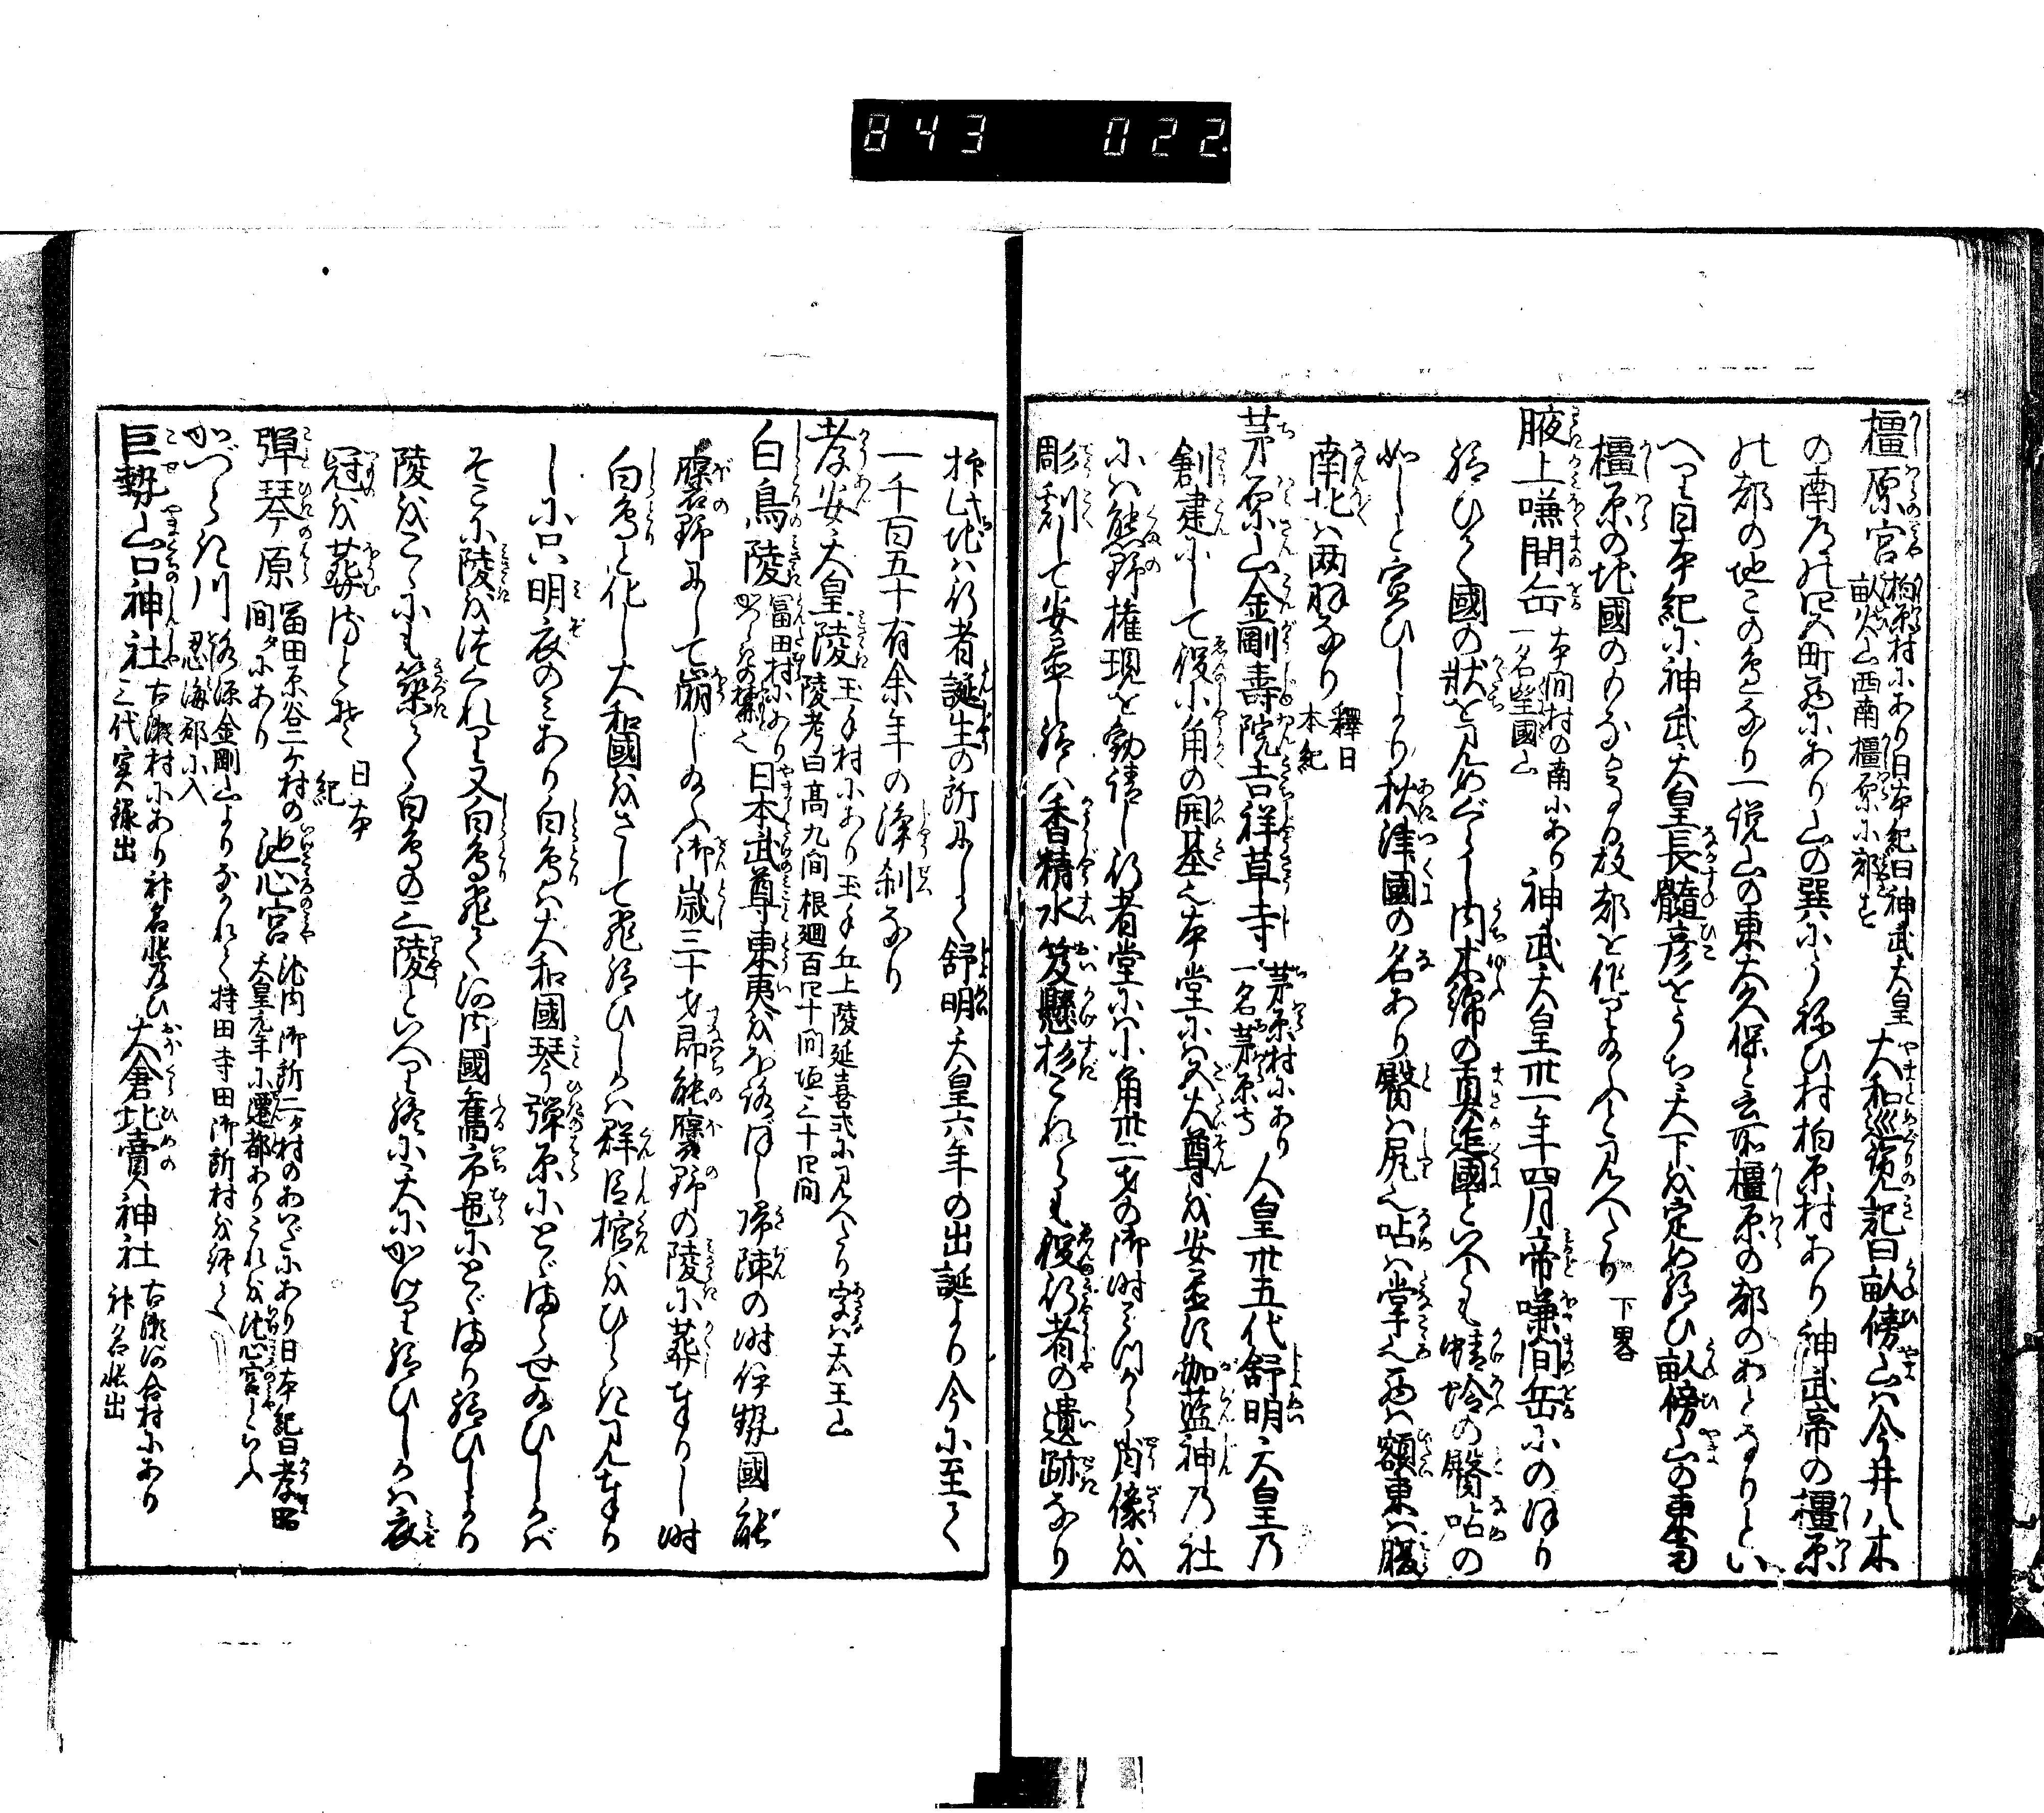 843 022
橿原宮 柏原村にあり日本紀曰神武天皇
畝火山西南橿原に都す 大和巡覧記曰畝傍山ハ今井八木
の南乃四条町西にあり山の巽にうねひ村柏原村あり神武帝の橿原
の都の地このうなり一説山の東大久保と云所橿原の都のあとなりとい
へり日本紀に神武天皇長髄彦をうち天下を定め給ひ畝傍山の東南
橿原の地國のもなかなる故都を作り玉ふと見へたり 下畧
腋上嗛間岳 本間村の南にあり
一名望國山 神武天皇卅一年四月帝嗛間岳にのぼり
給ひて國の状を見めぐらし内木綿の真迮國といへとも蜻蛉の臀呫の
如しと宣ひしより秋津國の名あり臀ハ尻也呫ハ掌也西ハ額東ハ腹
南北ハ両羽なり 釋日
本紀
茅原山金剛壽院吉祥草寺 茅原村にあり
一名茅原寺 人皇卅五代舒明天皇乃
創建にして役小角の開基也本堂にハ五大尊を安置す伽藍神乃社
にハ熊野権現を勧請し行者堂にハ小角卅二才の御時みづから肖像を
彫刻して安置し給ハ香精水笈懸杉これらも役行者の遺跡なり
抑此地ハ行者誕生の所にして舒明天皇六年の出誕より今に至て
一千百五十有余年の浄刹なり
孝安天皇陵 玉手村にあり玉手丘上陵延喜式に見へたり字ハ云王山
陵考曰高九間根廻百四十間垣之十四間
白鳥陵 冨田村にあり 日本武尊東夷をほろぼし帰陣の時伊勢國能
褒野にして崩じ玉ふ御歳三十才即能褒野の陵に葬奉りし時
白鳥と化し大和國をさして飛給ひしかハ群臣棺をひらき見奉り
しに只明衣のミあり白鳥ハ大和國琴弾原にとゞまらせ玉ひしかバ
そこに陵をつくれり又白鳥飛て河内國舊市邑にとゞまり給ひしより
陵をこゝにも築く白鳥の三陵といへり終に天にかけり給ひしかハ衣
冠を葬るとぞ 日本
紀
弾琴原 冨田原谷二ケ村の
間タにあり 池心宮 池内御所二タ村のあいだにあり日本紀曰孝昭
天皇元年に遷都ありこれを池心宮といふ
かづらき川 源金剛山よりながれて持田寺田御所村を経て
忍海郡に入
巨勢山口神社 古瀬村にあり神名帳及ひ
三代実録出 大倉比賣神社 古瀬河合村にあり
神名帳出